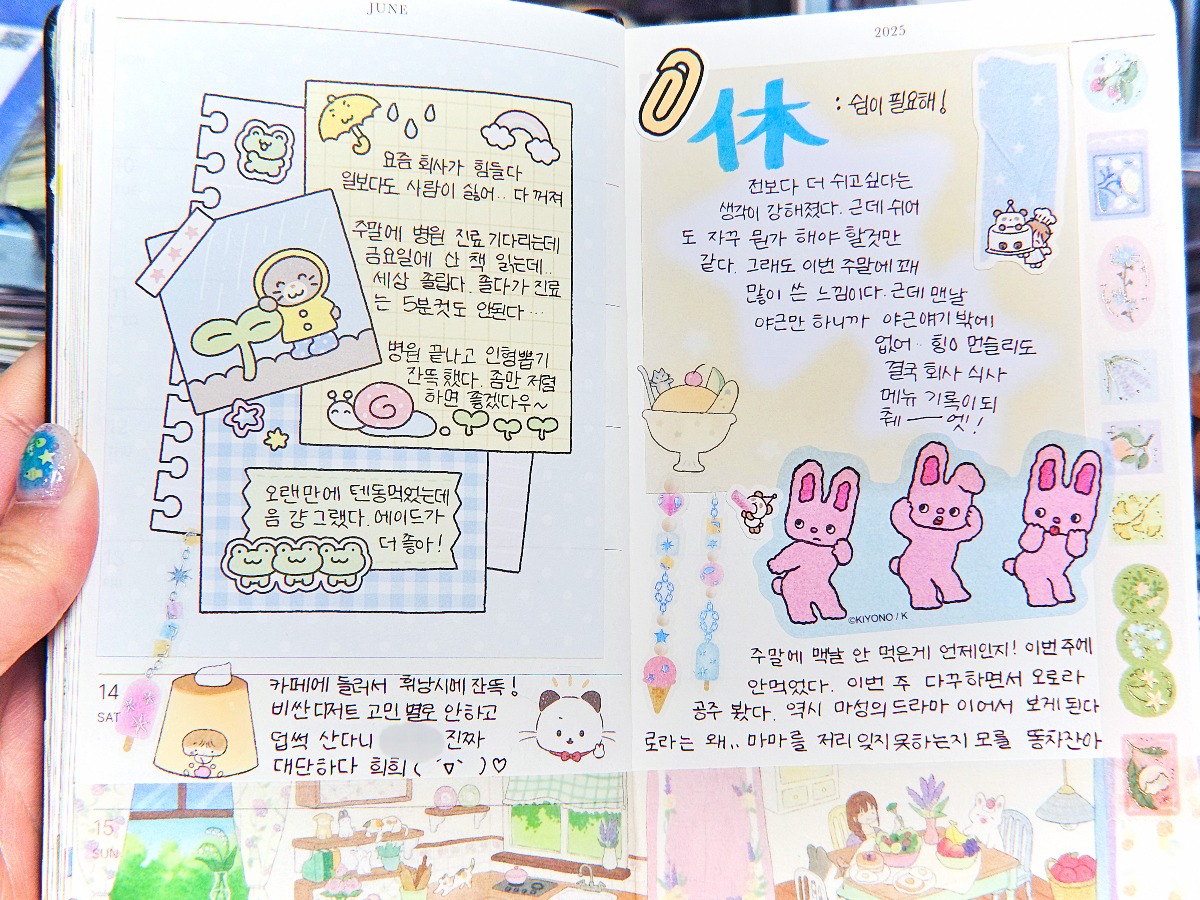 JUNE
요즘 회사가 힘들다
일보다도 사람이 싫어.. 다 꺼져
주말에 병원 진료 기다리는데
금요일에 산 책 읽는데..
세상 졸립다. 졸다가 진료
는 5분컷도 안된다…
병원 끝나고 인형뽑기
잔뜩 했다. 좀만 저렴
하면 좋겠다우~
오랜만에 텐동먹었는데
음 걍 그랬다. 에이드가
더 좋아!
14
SAT
카페에 들러서 휘낭시에 잔뜩!
비싼 디저트 고민 별로 안하고
덥썩 산다니 진짜
대단하다 희희 ( ´∇` )♡
15
SUN
2025
休 : 쉼이 필요해!
전보다 더 쉬고싶다는
생각이 강해졌다. 근데 쉬어
도 자꾸 뭔가 해야 할것만
같다. 그래도 이번 주말에 꽤
많이 쓴 느낌이다. 근데 맨날
야근만 하니까 야근얘기 밖에
없어.. 힝0 먼슬리도
결국 회사 식사
메뉴 기록이 되
췌ㅡ엣!
©KIYONO / K
주말에 맥날 안 먹은게 언제인지! 이번주에
안먹었다. 이번 주 다꾸하면서 오로라
공주 봤다. 역시 마성의 드라마 이어서 보게된다
로라는 왜.. 마마를 저리 잊지못하는지 모를 똥차잔아